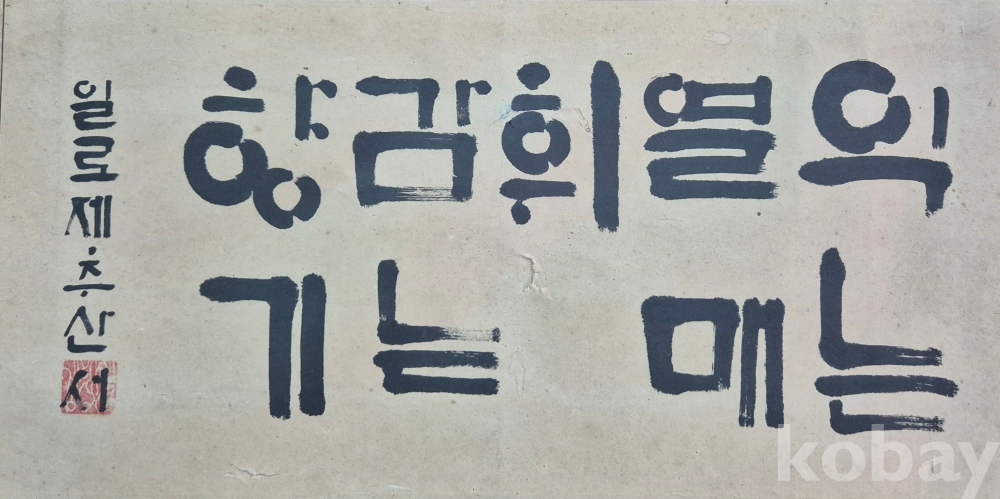 익는
열매
휘
감는
향기
일로제추산서
kobay